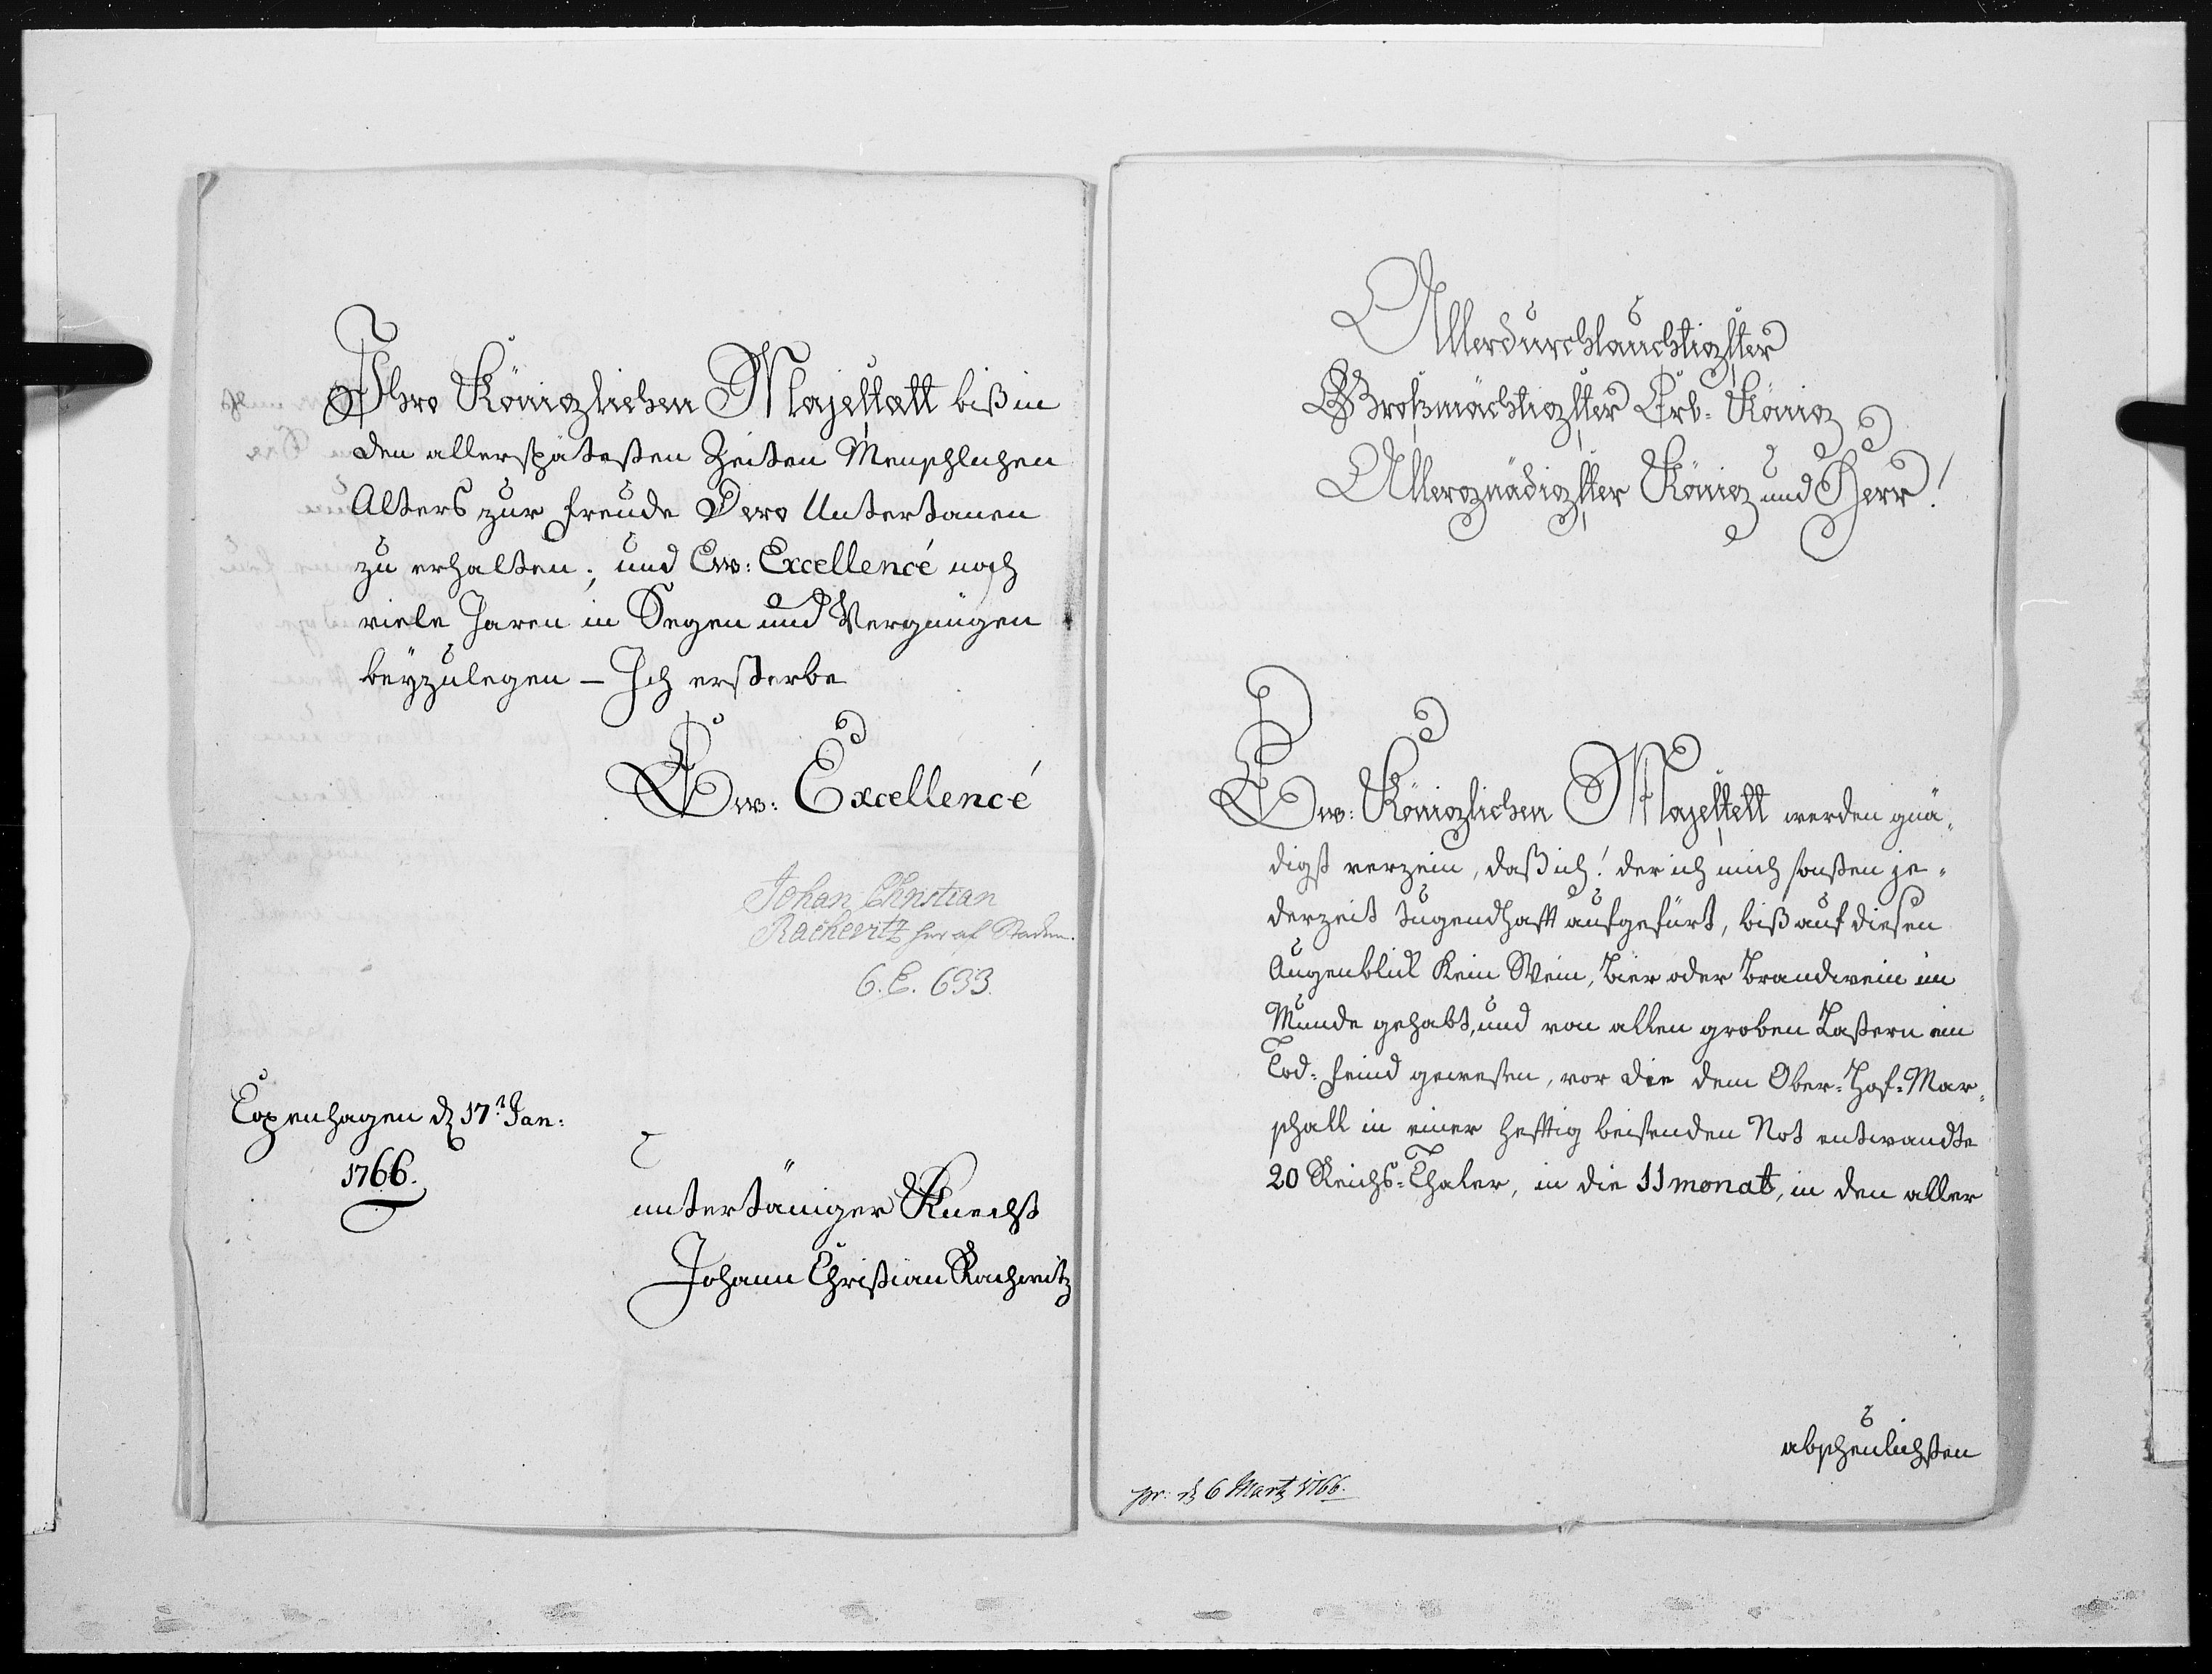 Ihro Königlichen Majestätt biß in
den allerspätesten Zeiten Menschlichen
Alters zur Freude Dero Untertanen
zu erhalten; und Ew: Excellencé noch
viele Jaren in Segen und Vergnügen
beyzulegen – Ich ersterbe
Ew: Excellencé
Johan Christian
Rachevitz her af Staden.
6. C. 633.
Copenhagen d 17t Jan:
1766.
untertäniger Knecht
Johann Christian Rachwitz
Allerdurchlauchtigster
Großmächtigster Erb-König
Allergnädigster König und Herr!
Ew: Königlichen Majestett werden gnä-
digst verzein, daß ich! der ich mich sonsten je-
derzeit tugendhafft aufgefürt, biß auf diesen
Augenblick kein Wein, Bier oder Brandwein im
Munde gehabt, und von allen groben Lastern ein
Tod-Feind gewesen, vor die dem Ober-Hof-Mar-
schall in einer hefftig beisenden Not entwandte
20 Reichs-Thaler, in die 11 monat, in den aller
abscheulichsten
pr: d 6 Martz 1766.